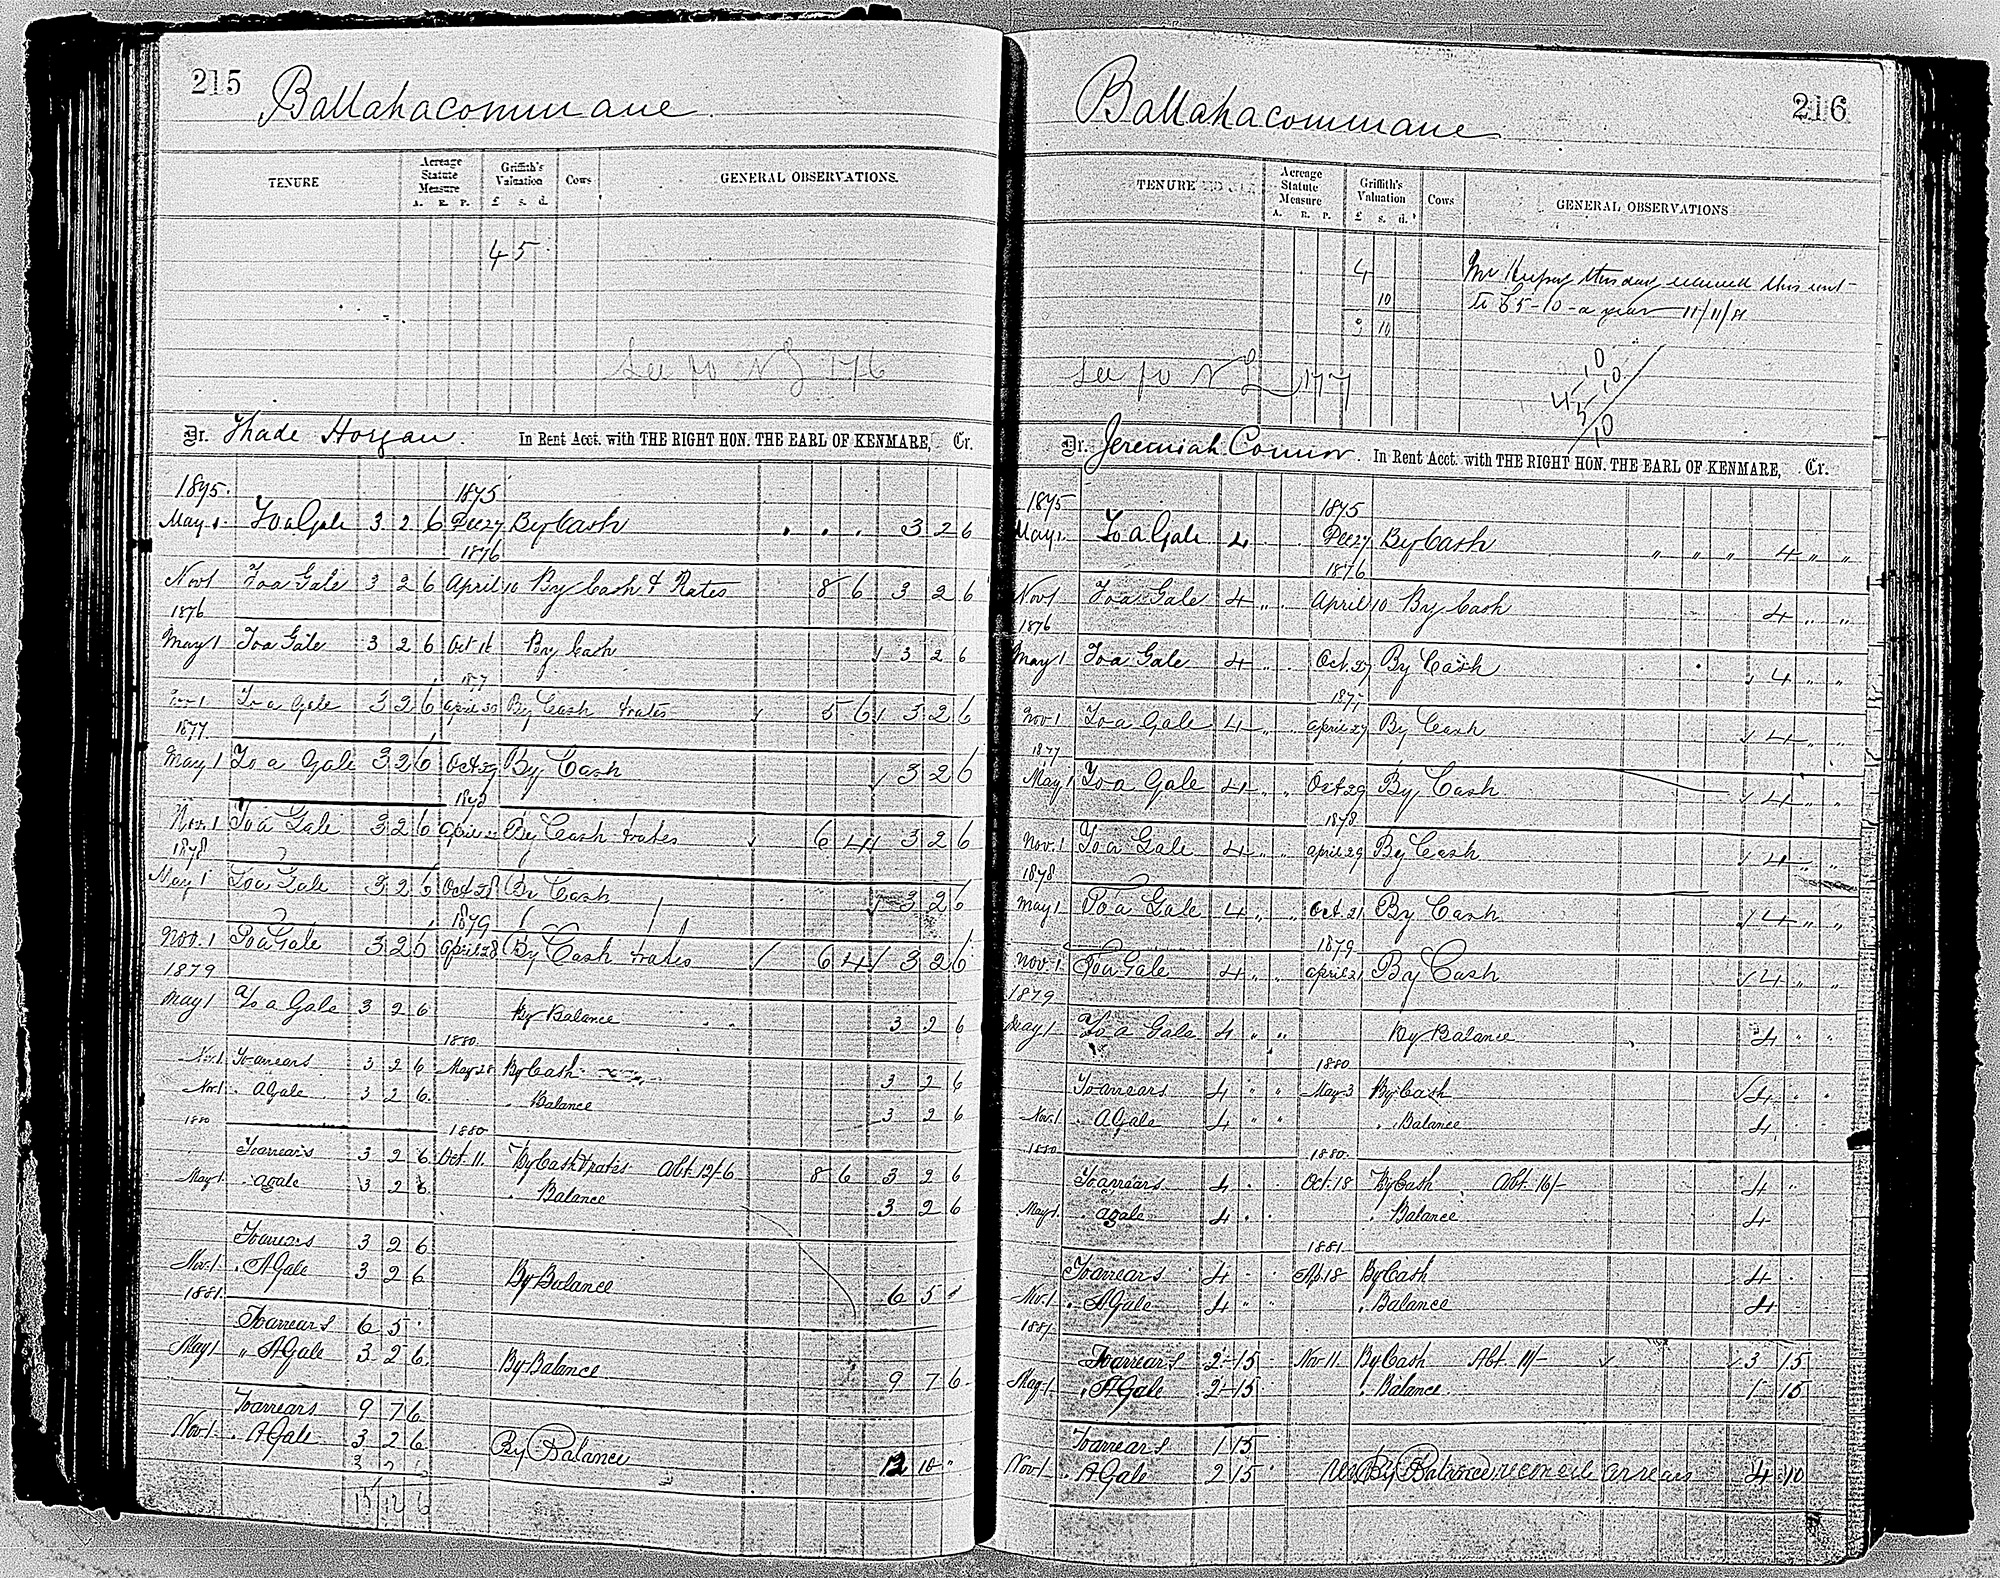 215
Ballahacommane
TENURE
Acreage Statute Measure
A. R. P.
Griffith's Valuation
£ s. d.
Cows
GENERAL OBSERVATIONS.
4 5
See fo N L 176
Dr. Thade Horgan. In Rent Acct. with THE RIGHT HON. THE EARL OF KENMARE, Cr.
1875. 1875
May 1. To a Gale 3 2 6 Dec 27 By Cash . . . 3 2 6
1876
Nov 1 To a Gale 3 2 6 April 10 By Cash & Rates 8 6 3 2 6
1876
May 1 To a Gale 3 2 6 Oct 16 By Cash 3 2 6
1877
Nov 1 To a Gale 3 2 6 April 30 By Cash & rates 5 6 3 2 6
1877
May 1 To a Gale 3 2 6 Oct 29 By Cash 3 2 6
1878
Nov. 1 To a Gale 3 2 6 April By Cash & rates 6 4 3 2 6
1878
May 1 To a Gale 3 2 6 Oct 28 By Cash 3 2 6
1879
Nov. 1 To a Gale 3 2 6 April 28 By Cash & rates 6 4 3 2 6
1879
May 1 To a Gale 3 2 6 By Balance 3 2 6
1880
Nov. 1 To arrears 3 2 6 May 28 By Cash 3 2 6
Nov. 1 " A Gale 3 2 6 " Balance 3 2 6
1880 1880
To arrears 3 2 6 Oct. 11. By Cash & rates Abt. 12/6 8 6 3 2 6
May 1 " a gale 3 2 6 " Balance 3 2 6
To arrears 3 2 6
Nov. 1. " A Gale 3 2 6 By Balance 6 5 "
1881.
To arrears 6 5 "
May 1 " A Gale 3 2 6 By Balance 9 7 6
To arrears 9 7 6
Nov. 1 " A Gale 3 2 6 By Balance 12 10 "
3 2 6
15 12 6
216
Ballahacommane
TENURE
Acreage Statute Measure
A. R. P.
Griffith's Valuation
£ s. d.
Cows
GENERAL OBSERVATIONS
4
10
9 10
Mr Hussey this day reduced this rent
to £5-10- a year 11/11/81
See fo N L 177
10
4 10
5
10
Dr. Jeremiah Connor. In Rent Acct. with THE RIGHT HON. THE EARL OF KENMARE, Cr.
1875 1875
May 1. To a Gale 4 Dec 27 By Cash " " " 4 " "
1876
Nov 1 To a Gale 4 " " April 10 By Cash 4 " "
1876
May 1 To a Gale 4 " " Oct. 27 By Cash 4 " "
1877
Nov. 1 To a Gale 4 " " April 27 By Cash 4 " "
1877
May 1 To a Gale 4 " " Oct 29 By Cash 4 " "
1878
Nov. 1 To a Gale 4 " " April 29 By Cash 4 " "
1878
May 1 To a Gale 4 " " Oct. 21 By Cash 4 " "
1879
Nov. 1 To a Gale 4 " " April 21 By Cash 4 " "
1879
May 1 To a Gale 4 " " By Balance 4 " "
1880
To arrears 4 " " May 3 By Cash 4 " "
Nov. 1 " A Gale 4 " " " Balance 4
1880 1880.
To arrears 4 " Oct. 18 By Cash Abt. 16/- 4 "
May 1. " a gale 4 " " Balance 4
1881.
To arrears 4 " " Ap. 18 By Cash 4
Nov. 1 " A Gale 4 " " " Balance 4
1881.
To arrears 2 15 " Nov 11. By Cash Abt. 11/- 3 15
May 1. " A Gale 2 15 " Balance 1 15
To arrears 1 15
Nov. 1 " A Gale 2 15 " By Balance reconcile arrears 4 10